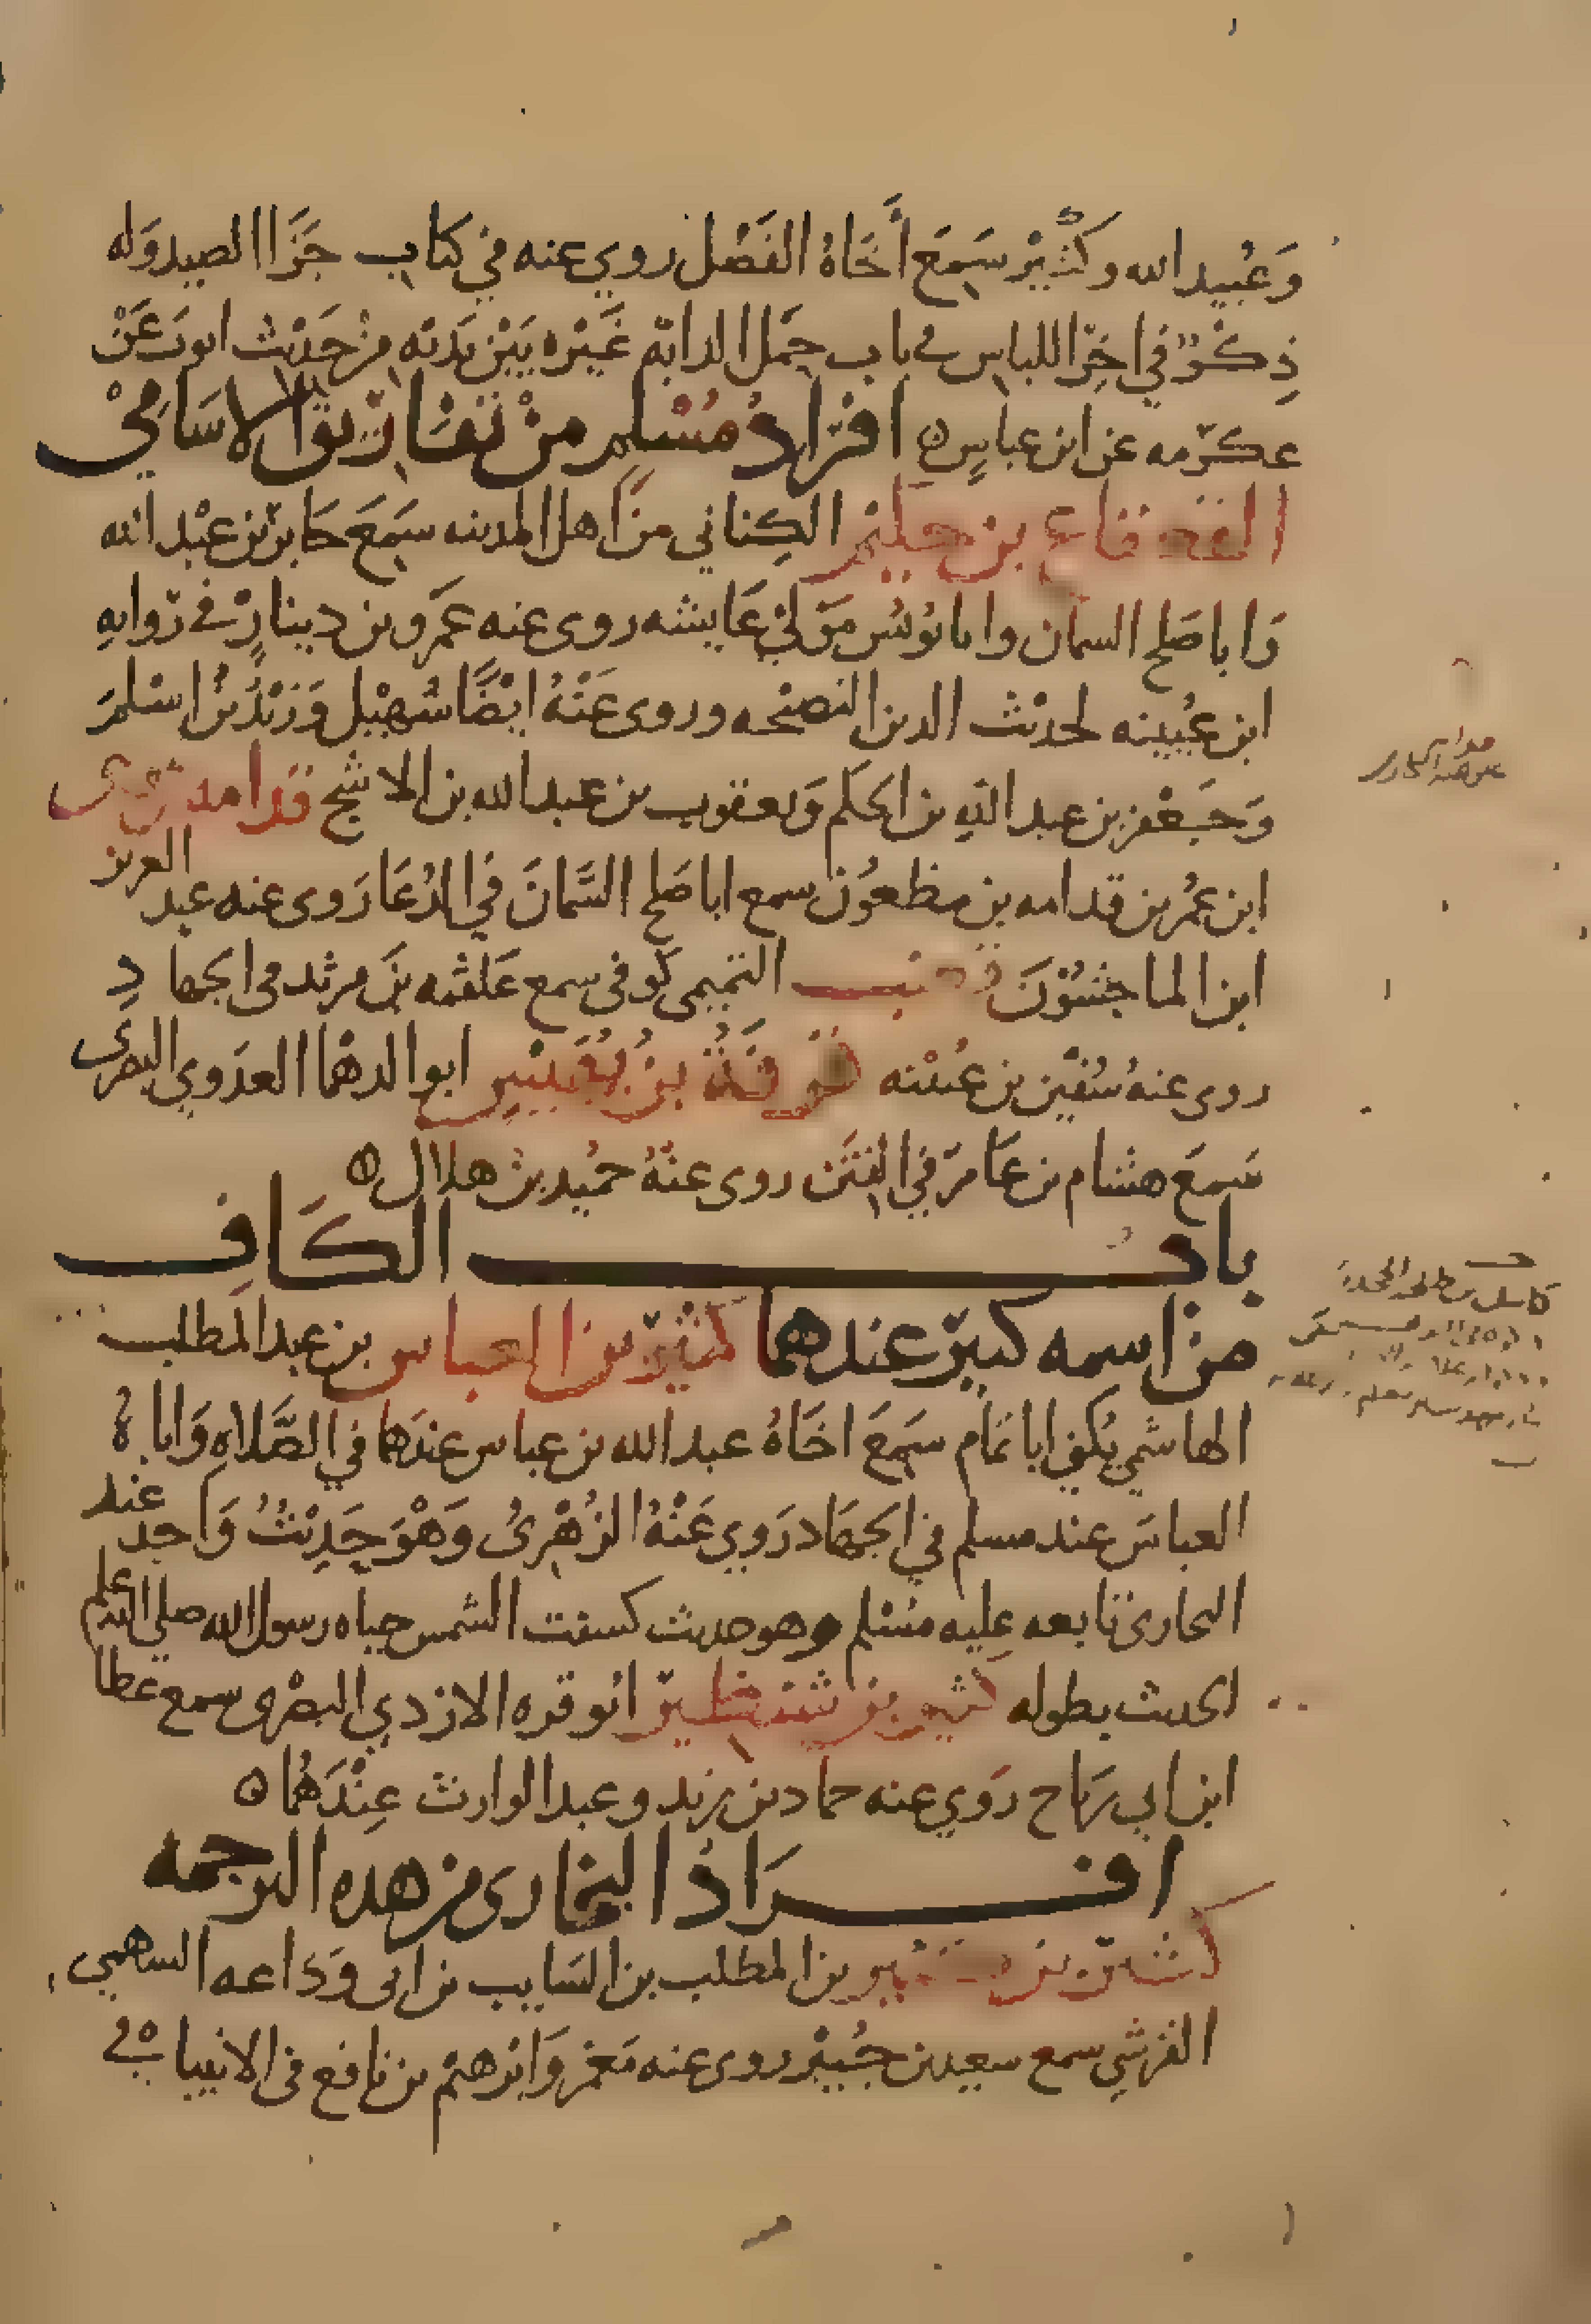 وَعُبيد الله وكثيْر سَمِعَ أَخَاهُ الفَضْل روي عنه في كتاب جَزَا الصيد وَله
ذِكرٌ في اخِر اللباس في باب حمْل الدابه غيْره بَيْن يَدَيْه مِن حَدِيْث ايوب عَنْ
عكرمه عن ابن عباسٍ ه افرَادُ مُسْلِم مِنْ تفَاريق الاسَامِيْ
القعقاع بن حكيْم الكِناني من اهل المدينه سَمِعَ جَابر بن عبْد الله
وَابا صَلح السمان وابا يونُس مَوْلى عَايشه روى عنه عَمرو بن دينارٍ في رواية
ابن عُيينه لحديْث الدين النصيْحه وروى عَنْهُ ايْضًا سُهَيْل وَزَيْدُ بْنُ اسْلَم
وَجَعْفر بن عبد الله بن الحكم وَيعقوب بن عبد الله بن الاشج قدَامه بن موسى
ابن عُمر بن قدامه بن مظعُون سمع ابا صَلح السَّمانَ في الدُعَا رَوى عنه عبد العزيز
ابن الماجشوْنَ قعنب التميمي كوفى سمع عَلقمه بنَ مرثد في الجهادِ
روى عنهُ سُفيٰن بن عُييْنه قرفَةُ بن بُهَيْسٍ ابو الدهْما العدَوي البصْرى
سَمِعَ هشام بن عَامر في الفِتَن روى عنْهُ حميْد بن هلال ه
بابُ الكَافِ
من اسمه كثير عندهما كثيْر بن العباس بن عبد المطلب
الهاشمي يُكنى ابا تمَام سَمِعَ اخَاهُ عبد الله بن عباس عندَهما في الصَّلاه وَاباهُ
العباسَ عند مسلم في الجهَاد رَوي عَنْهُ الزُهْرىُ وَهْوَ حَدِيْثُ وَاحد عند
البخارى تابعه عليه مُسْلم وهو حديث كسفت الشمس حياه رسول الله صلى الله عليه
الحديث بطوله كثير بن شنْظيْر ابو قره الازدي البصْرى سمع عطا
ابن ابي رَباح رَوي عنه حماد بن زيد وعبد الوارث عِنْدَهُما ه
افرَادُ البخارى من هذه الترجمه
كثيْر بن كثيْر بن المطلب بن السَايب بن ابى وَدَاعه السهمي
القرشي سمع سعيد بن جُبَيْر روى عنه مَعْمر وَابْرٰهيْم بن نافع فى الانبيا في